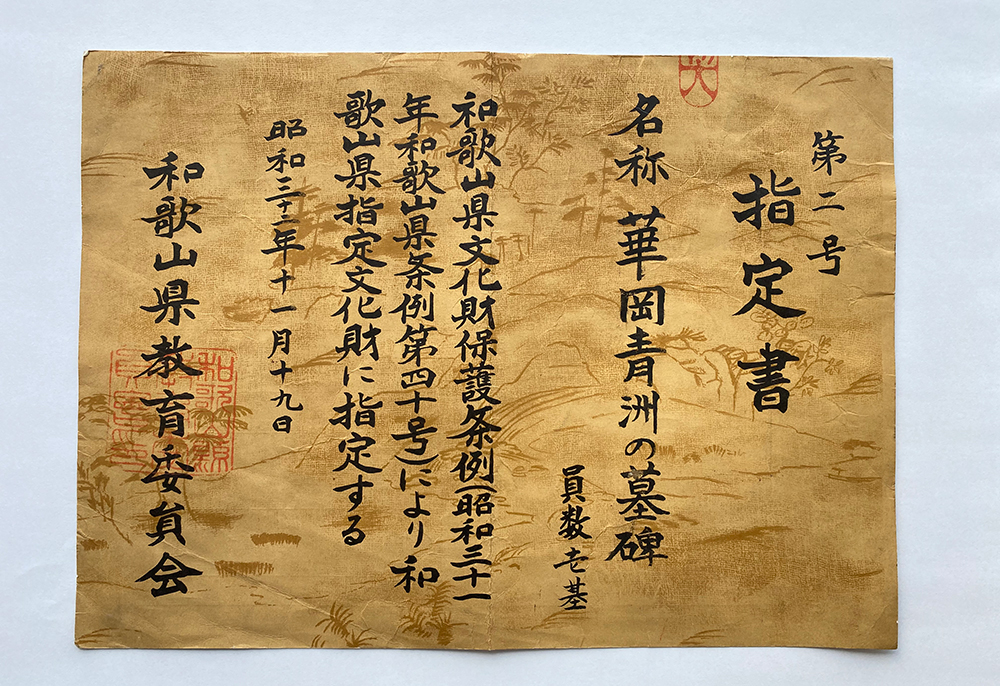 第二号
指定書
名称 華岡青洲の墓碑
員数 壱基
和歌山県文化財保護条例(昭和三十一
年和歌山県条例第四十号)により 和
歌山県指定文化財に指定する
昭和三十二年十一月十九日
和歌山県教育委員会